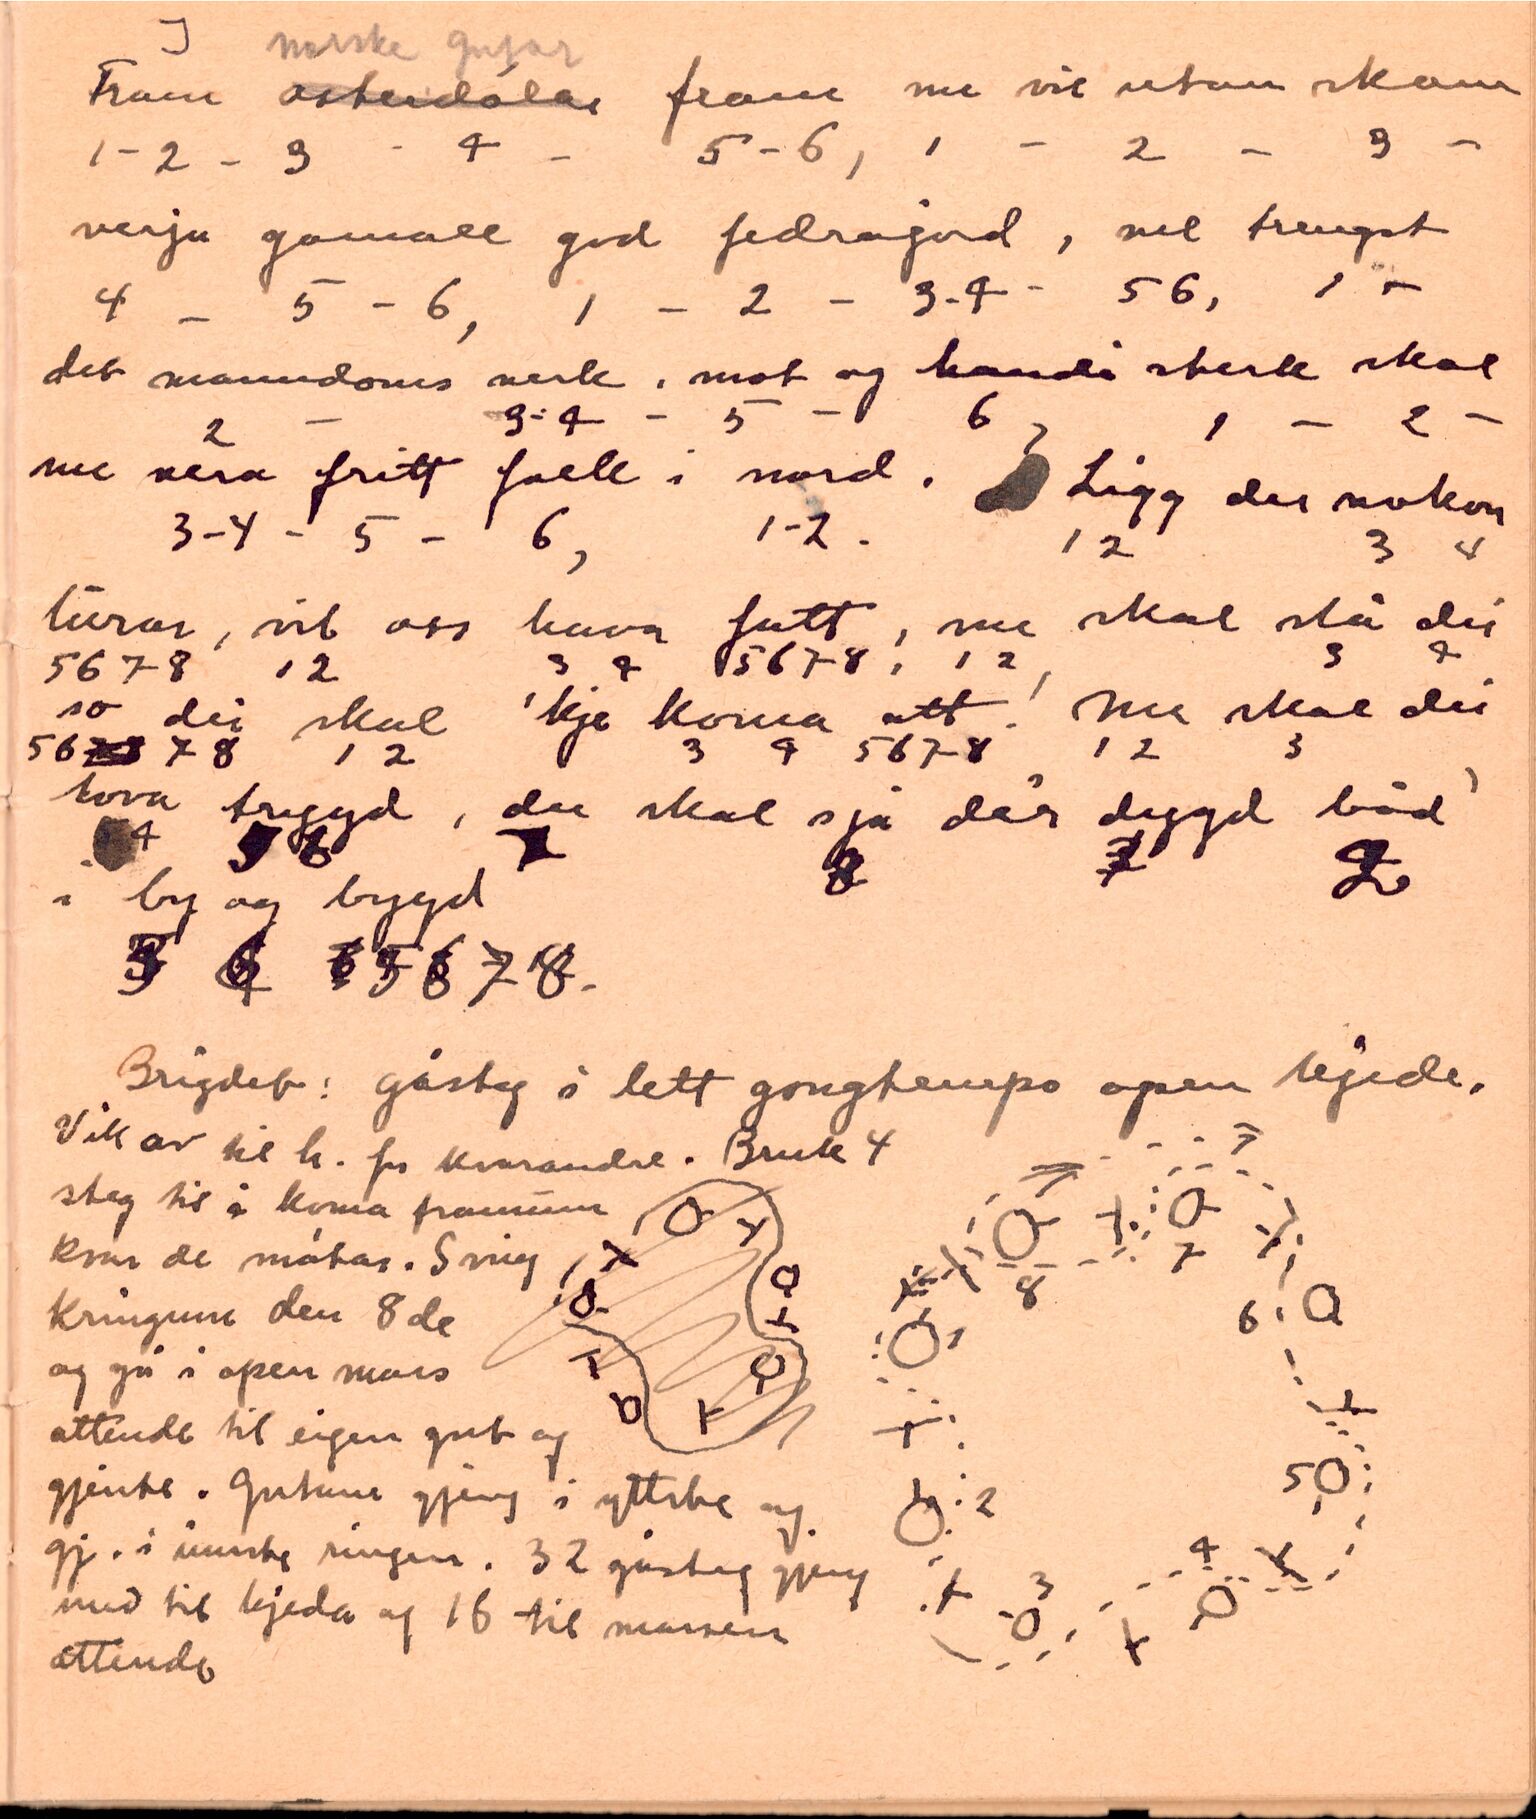 I norske gutar
Fram østerdølar fram me vil utan skam
1-2-3-4-5-6, 1-2-3-
verja gamall god fedrajord, vel trengst
4-5-6, 1-2-3-4-56, 1-
det manndoms verk, mot og handi sterk skal
2-3-4-5-6, 1-2-
me vera fritt folk i nord. Ligg der nokon
3-4-5-6, 1-2. 1 2 3 4
lurar, vil oss hava fatt, me skal slå dei
5678 12 3 4 5678, 12, 3 4
so dei skal 'kje koma att! Me skal dei
56 78 12 3 4 5678 12 3
lova trygd, du skal sjå dår dygd båd'
4 5 6
i by og bygd
5 6 7 8.
Brigdet: gåsteg i lett gongtempo open kjede.
Vik av til h. for kvarandre. Bruk 4
steg til å koma framum
kvar de møtar. Sving
kringum den 8de
og gå i open mars
attende til eigen gut og
gjente. Gutane gjeng i yttste og
gj. i inste ringen. 32 gåsteg gjeng
med til kjeda og 16 til marsen
attende
8 7
1 6
2 5
3 4